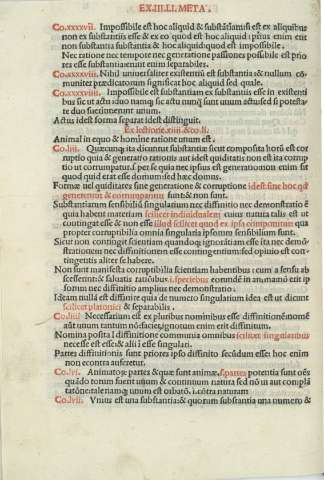 EX.III.LI. META.
Co.xxxxvii. Impossibile est hoc aliquid & substantiam si est ex aliquibus
non ex substantiis esse & ex eo quod est hoc aliquid: prius enim eut
non substantia substantia & hoc aliquid quod est impossibile.
Nec ratione nec tempore nec generatione passiones possibile est prio
res esse substantia: essent enim separabiles.
Co.xxxxviii. Nihil universaliter existentiū est substantia: & nullum cō
muniter prædicatorum significat hoc aliquid sed quale.
Co.xxxxviiii. Impossibile est substantiam ex substantiis esse in existenti
bus sic ut actu: duo namq; sic actu nunq̄ sunt unum actu: sed si potesta
te duo fuerint erunt unum.
Actus idest forma separat idest distinguit.
Ex lectione.xiiii & co.li.
Animal in equo & homine ratione unum est.
Co.liii. Quæcunq; ita dicuntur substantiæ sunt composita horū est cor
ruptio quia & generatio rationis aut idest quiditatis non est ita corrup
tio ut corrumpatur.s.per se quia nec ipsius est generatio: non enim fit
quod quid erat esse domui sed hæc domus.
Formæ uel quiditates sine generatione & corruptione idest sine hoc q
generentur & corrumpantur sunt & non sunt.
Substantiarum sensibiliū singularium nec diffinitio nec demonstratio ē
quia habent materiam scilicet indiuidualem cuius natura talis est ut
contingat esse & non esse illud scilicet quod ex ipsa componitur qua
propter corruptibilia omnia singularia ipsorum sensibilium sunt.
Sicut non contingit scientiam quandoq; ignorātiam esse ita nec demō
stationem nec diffinitionem esse contingentium: sed opinio est con-
tingentis aliter se habere.
Non sunt manifesta corruptibilia scientiam habentibus: cum a sensu ab
scesserint: & saluatis rationibus i.speciebus eorundē in anima nō erit ip
sorum nec diffinitio amplius nec demonstratio.
Ideam nulla est diffinire quia de numero singularium idea est ut dicunt
scilicet platonici & separabilis.
Co.liiii Necessarium est ex pluribus nominibus esse diffinitionē: nomē
aūt unum tantum nō faciet, ignotum enim erit diffinitum.
Nomina posita i diffinitione communia omnibus scilicet singularibus
necesse est esse: & alii i esse singulari.
Partes diffinitionis sunt priores ipso diffinito secūdum esse: hoc enim
non econtra auferetur.
Co.lvi. Animatoræ partes & quæ sunt animæ .s.partes potentia sunt oēs
quādo torum fuerit unum & continuum natura sed nō ui aut complā
tatiōne: tale namq; unum est orbatū. i. cōtra naturam
Co.lvii. Unius est una substantia: & quorum substantia una numero &